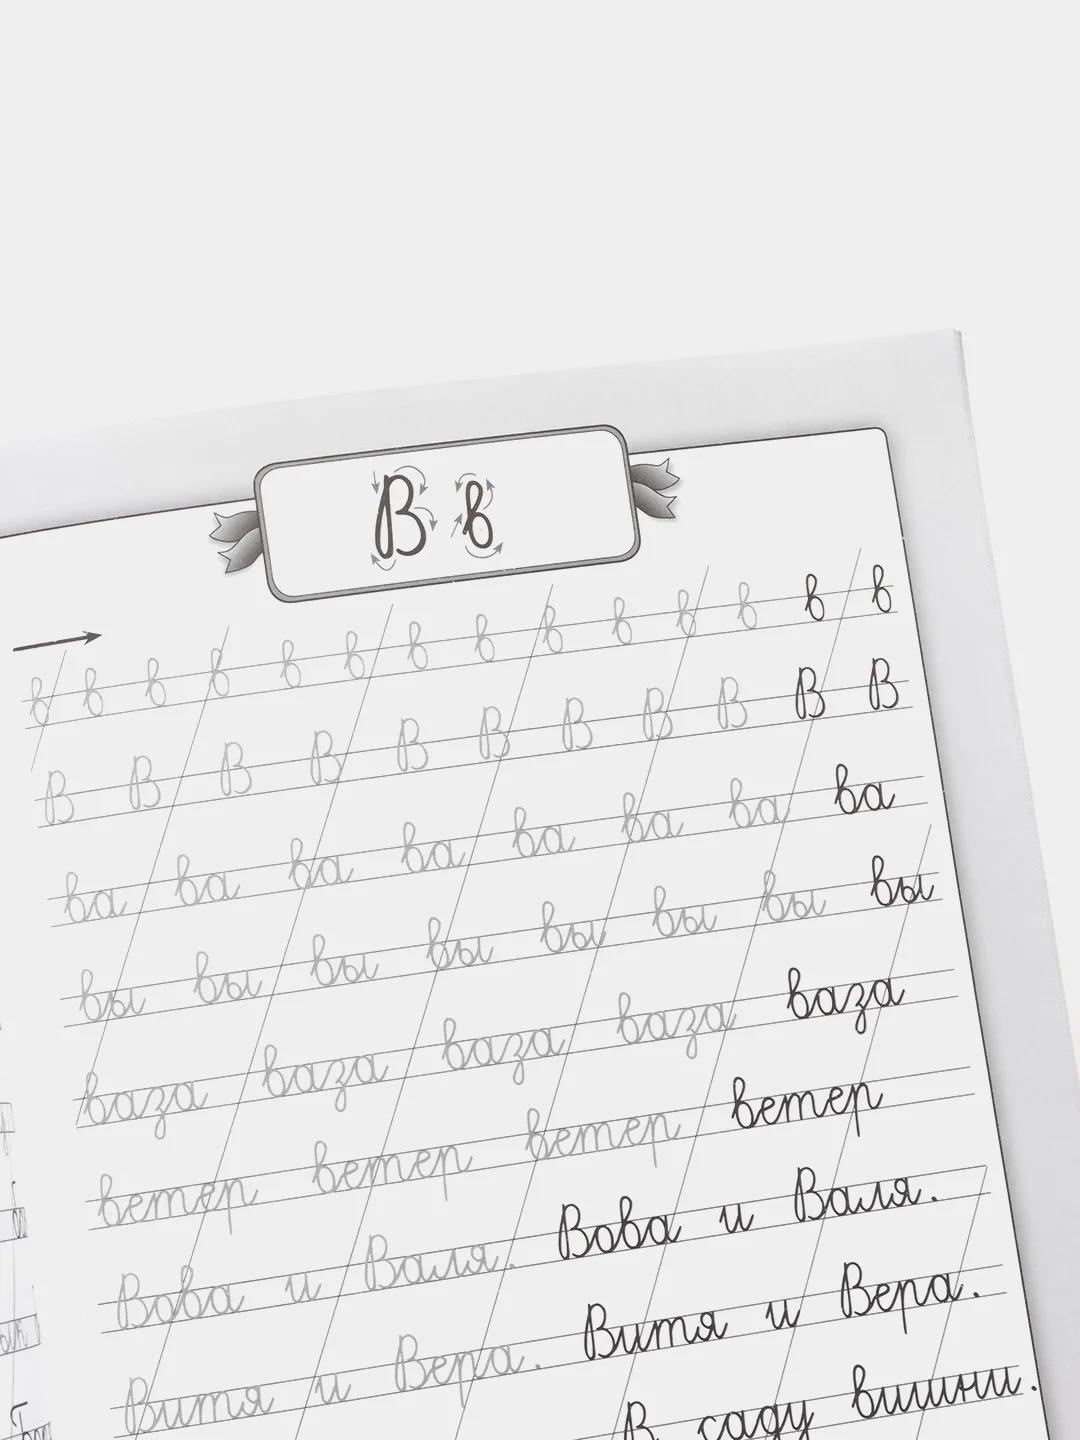 В в
в в в в в в в в в в в в в в
В В В В В В В В В В В
ва ва ва ва ва ва ва ва
вы вы вы вы вы вы вы вы
ваза ваза ваза ваза ваза
ветер ветер ветер ветер
Вова и Валя. Вова и Валя.
Витя и Вера. Витя и Вера.
В саду вишни.